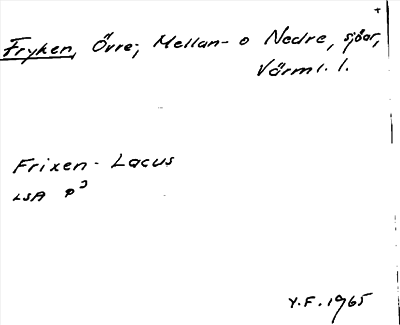 Fryken, Övre-, Mellan- o Nedre, sjöar,
Värml. l.
Frixen - Lacus
LSA P3
Y.F. 1965